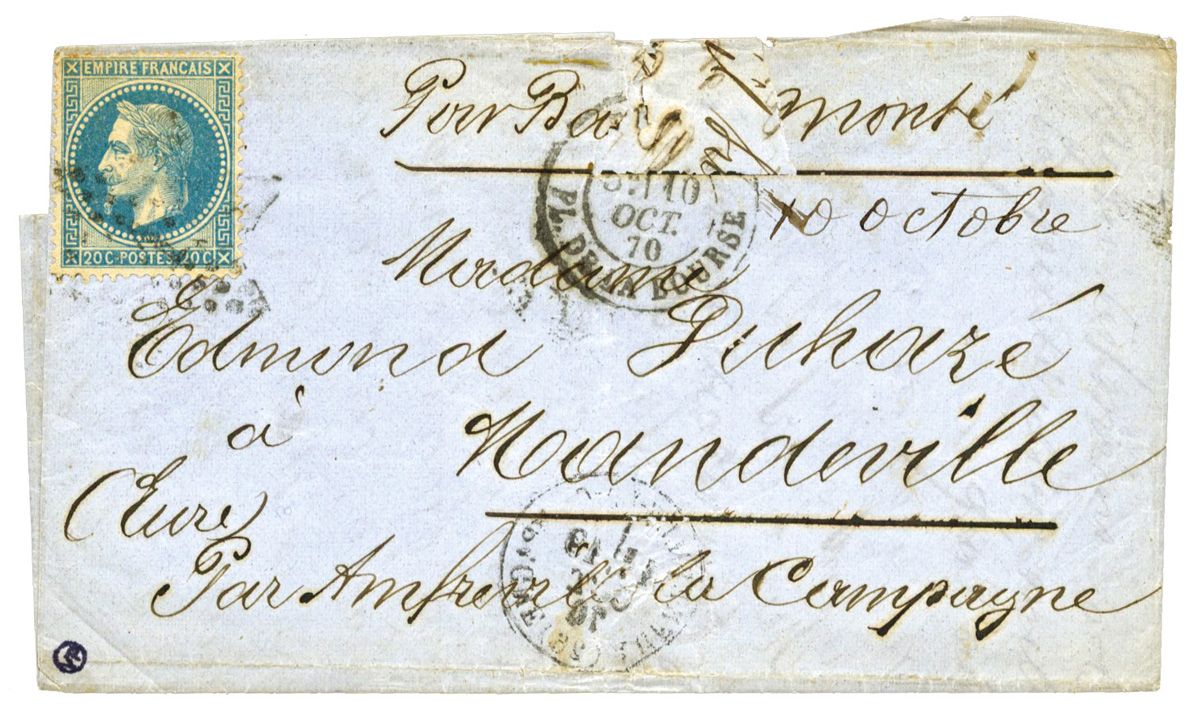 EMPIRE FRANCAIS
20 C - POSTES 20 C
Pour monté
OCT.
70
PL. DE LA BOURSE
10 octobre
Madame
Edmond Duhazé
à Mandeville
(Eure)
Par Amfreville la Campagne